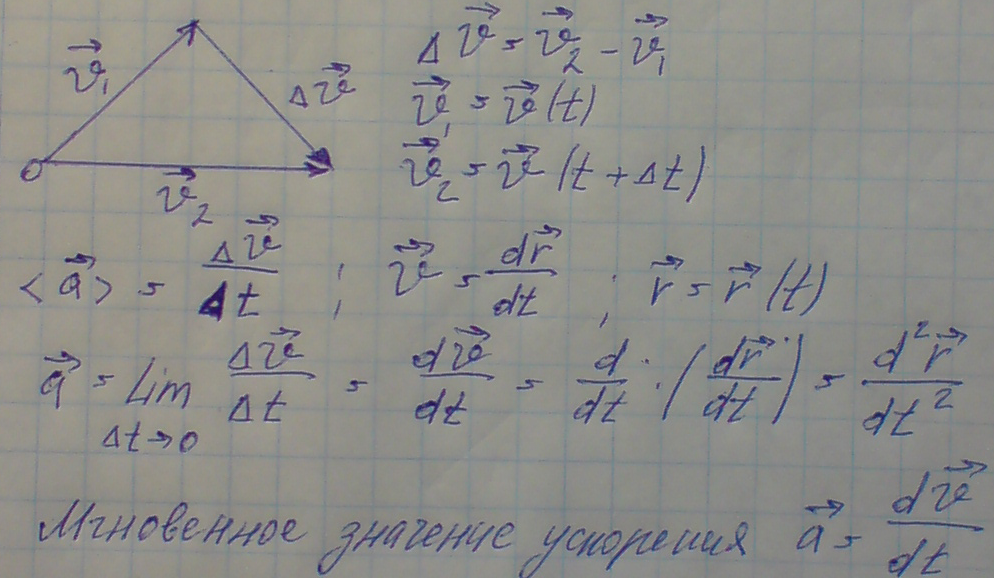 v⃗₁
Δv⃗
v⃗₂
Δv⃗ = v⃗₂ - v⃗₁
v⃗₁ = v⃗(t)
v⃗₂ = v⃗(t + Δt)
<a⃗> = Δv⃗/Δt ; v⃗ = dr⃗/dt ; r⃗ = r⃗(t)
a⃗ = Lim Δt→0 Δv⃗/Δt = dv⃗/dt = d/dt · (dr⃗/dt) = d²r⃗/dt²
Мгновенное значение ускорения a⃗ = dv⃗/dt